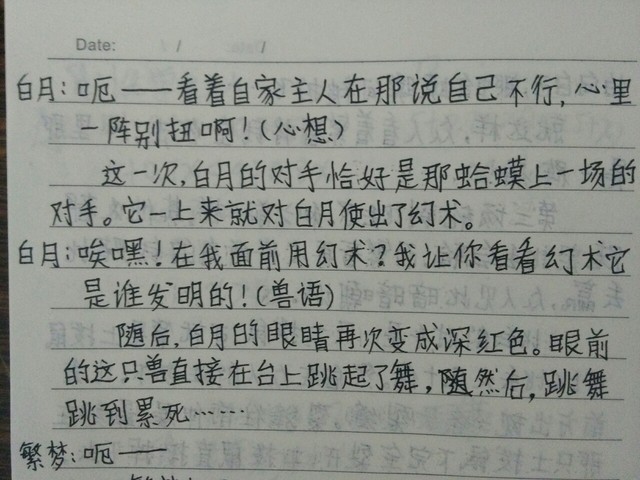 Date: / /
白月:呃——看着自家主人在那说自己不行,心里
一阵别扭啊!(心想)
这一次,白月的对手恰好是那蛤蟆上一场的
对手。它一上来就对白月使出了幻术。
白月:唉嘿!在我面前用幻术?我让你看看幻术它
是谁发明的!(兽语)
随后,白月的眼睛再次变成深红色。眼前
的这只兽直接在台上跳起了舞,随然后,跳舞
跳到累死……
繁梦:呃——